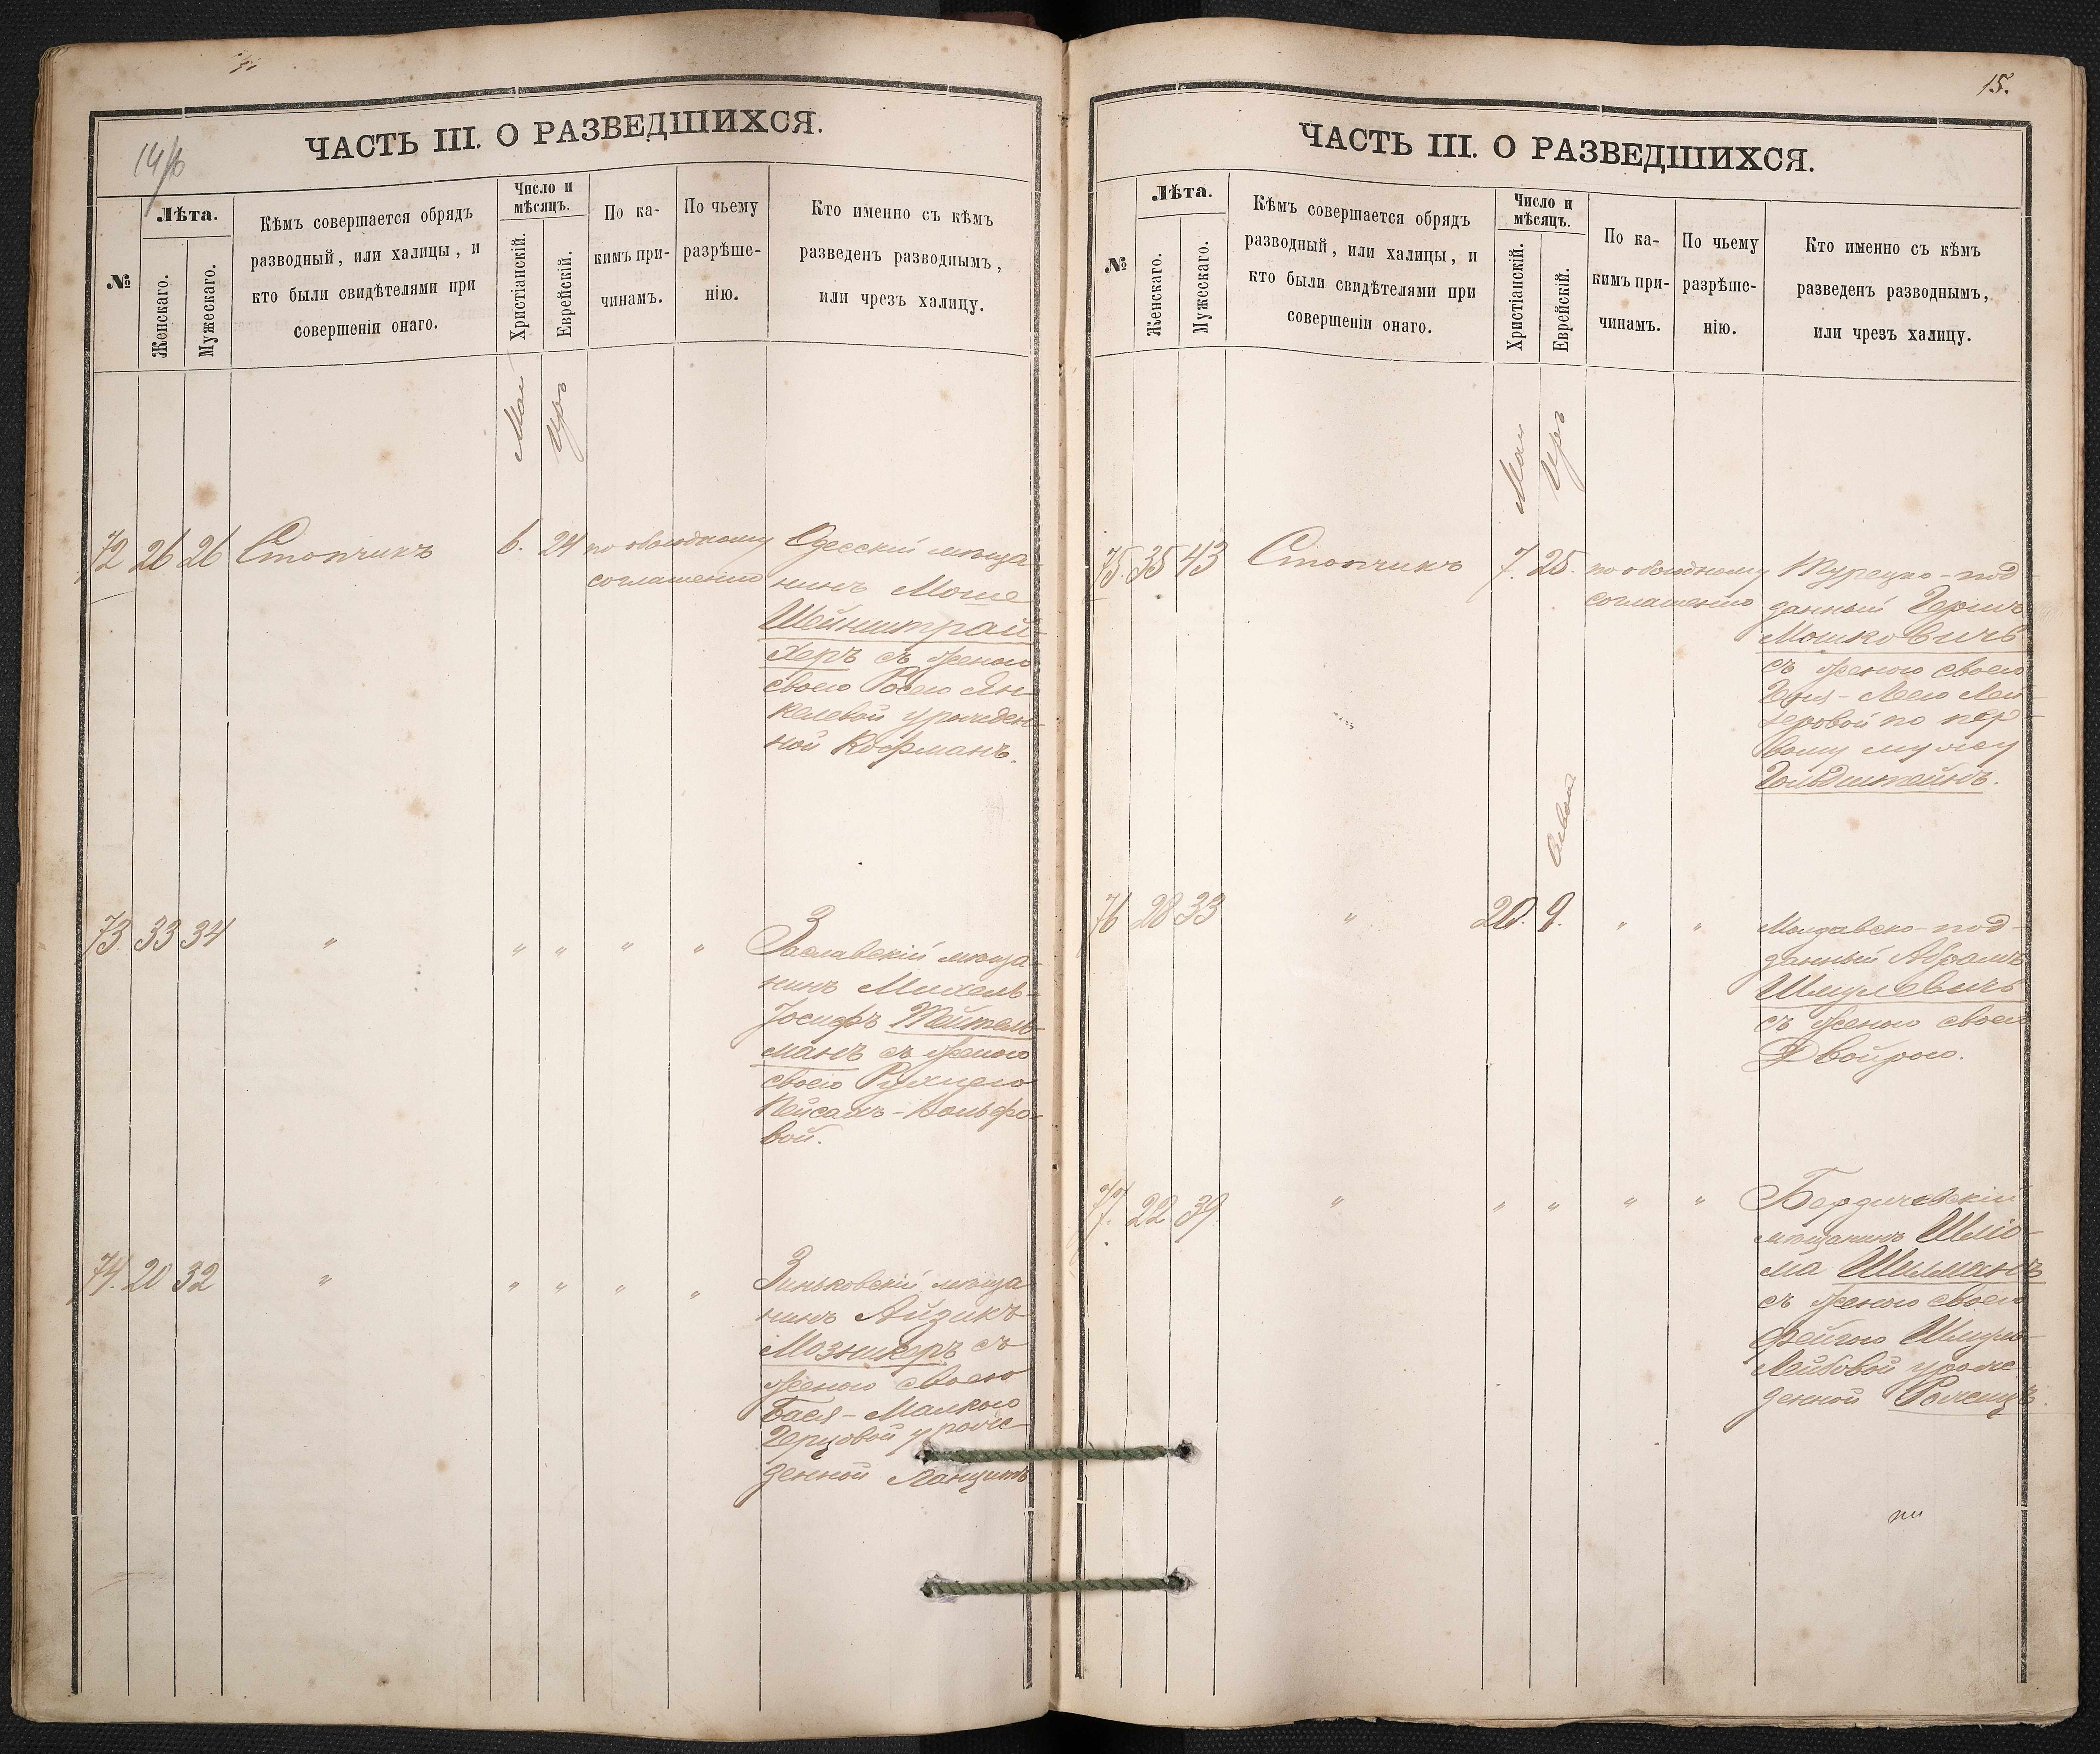 14/б
ЧАСТЬ III. О РАЗВЕДШИХСЯ.
№
Лѣта.
Женскаго.
Мужескаго.
Кѣмъ совершается обрядъ
разводный, или халицы, и
кто были свидѣтелями при
совершеніи онаго.
Число и
мѣсяцъ.
Христіанскій.
Еврейскій.
По ка-
кимъ при-
чинамъ.
По чьему
разрѣше-
нію.
Кто именно съ кѣмъ
разведенъ разводнымъ,
или чрезъ халицу.
Май
Іръ
72 26 26 Стопчикъ 6. 24 по обоюдному
соглашенію
Одесскій мѣща-
нинъ Моше
Шейнштрай-
херъ съ женою
своею Розею Ян-
келевой урожден-
ной Кофманъ.
73. 33 34 " " " " "
Заславскій мѣща-
нинъ Михель-
Іосифъ Тейтель-
манъ съ женою
своею Рухлею
Пейсахъ-Вольфо-
вой.
74. 20 32 " " " " "
Зиньковскій мѣща-
нинъ Айзикъ
съ
женою своею
Бася-Малкою
Герцовой урож-
денной
15.
ЧАСТЬ III. О РАЗВЕДШИХСЯ.
№
Лѣта.
Женскаго.
Мужескаго.
Кѣмъ совершается обрядъ
разводный, или халицы, и
кто были свидѣтелями при
совершеніи онаго.
Число и
мѣсяцъ.
Христіанскій.
Еврейскій.
По ка-
кимъ при-
чинамъ.
По чьему
разрѣше-
нію.
Кто именно съ кѣмъ
разведенъ разводнымъ,
или чрезъ халицу.
Май
Іръ
75. 35 43 Стопчикъ 7. 25. по обоюдному
соглашенію
Турецко-под-
данный Гершъ
Мошковичъ
съ женою своею
Лею Лей-
зеровой по пер-
вому мужу
Гольдштейнъ.
Сивой
76 28 33 " 20. 9. " "
Молдавско-под-
данный Абрамъ
Шмулевичъ
съ женою своею
Двойрою.
77. 22 39. " " " " "
Бердичевскій
мѣщанинъ Шлio-
ма Шильманъ
съ женою своею
Фейгою Шмуль-
Лейбовой урож-
денной